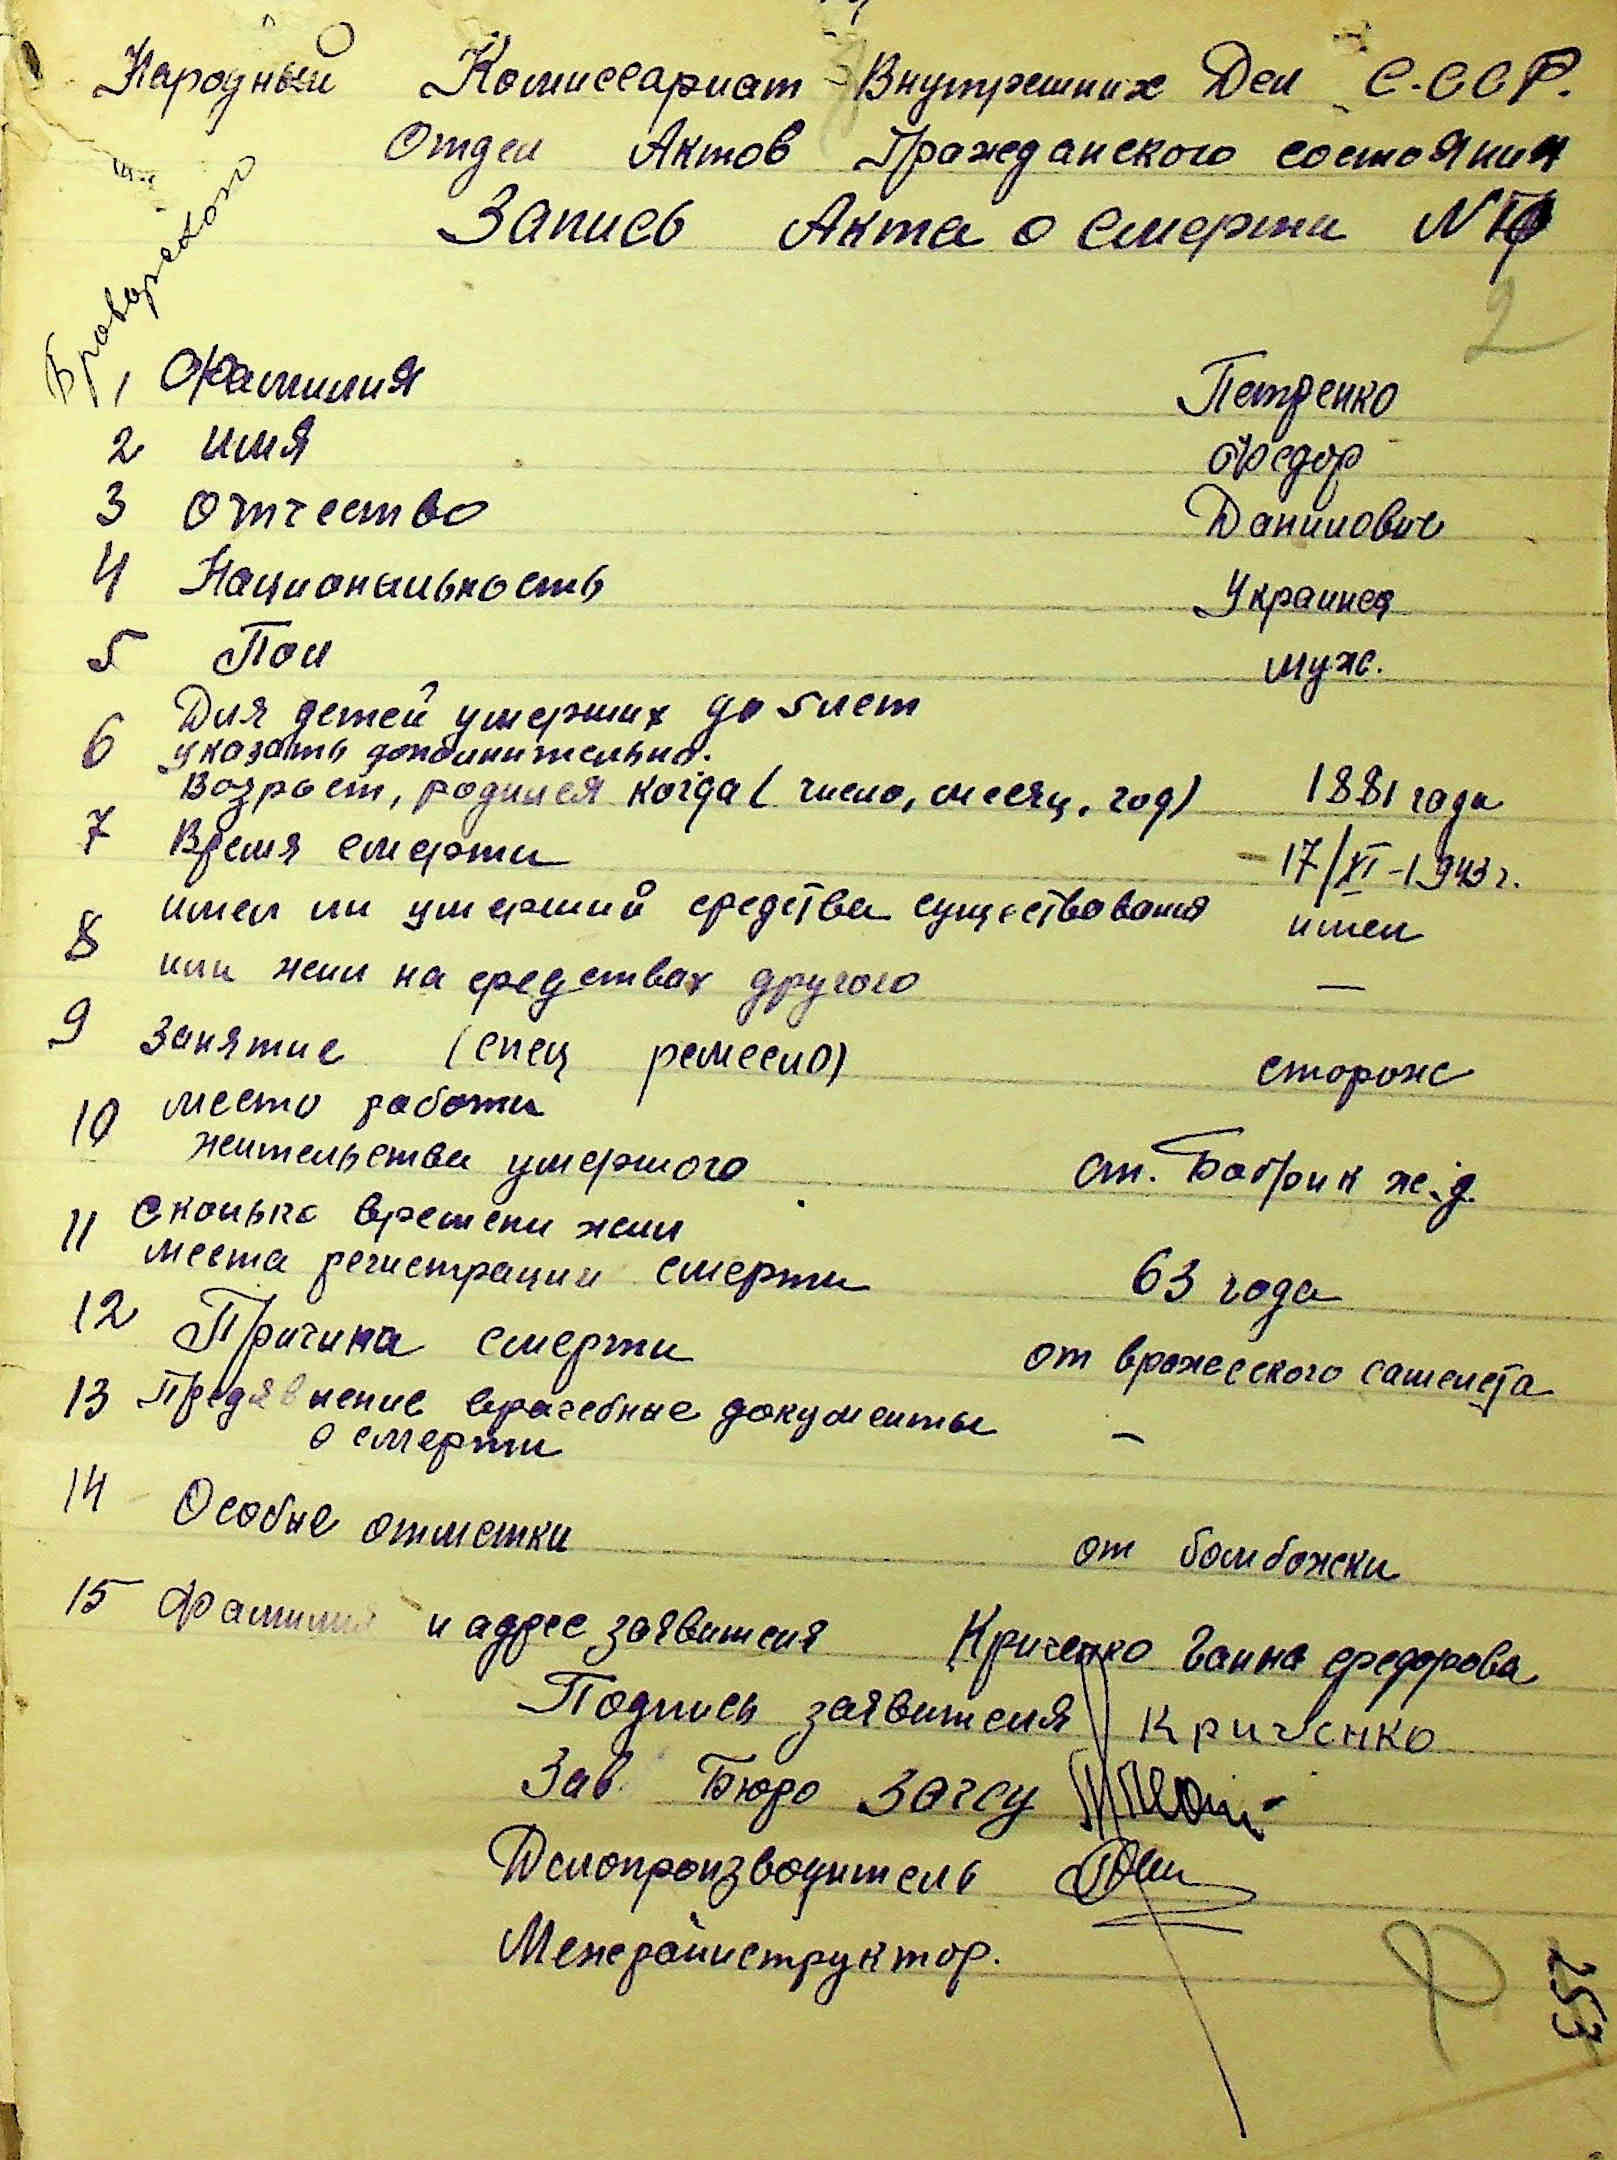 Народный Комиссариат Внутрених Дел С.ССР.
Отдел Актов Гражданского состояния
Запись Акта о смерти N
2
Броварской
1 Фамилия Петренко
2 имя Федор
3 отчество Данилович
4 Национальность Украинец
5 Пол муж.
6 Для детей умерших до 5 лет
указать дополнительно.
Возраст, родился когда (число, месяц, год) 1881 года
7 Время смерти 17/XI-1943 г.
8 имел ли умерший средства существования имел
или жил на средствах другого —
9 Занятие (спец ремесло) сторож
10 место работы
жительства умершого ст. Бобрик ж.д.
11 Сколько времени жил
места регистрации смерти 63 года
12 Причина смерти от вражеского самолета
13 Предявление врачебные документы —
о смерти
14 Особые отметки от бомбожки
15 Фамилия и адрес заявителя Криченко Ганна Федорова
Подпись заявителя Криченко
Зав. Бюро Загсу
Делопроизводитель
Межрайиструктор.
253